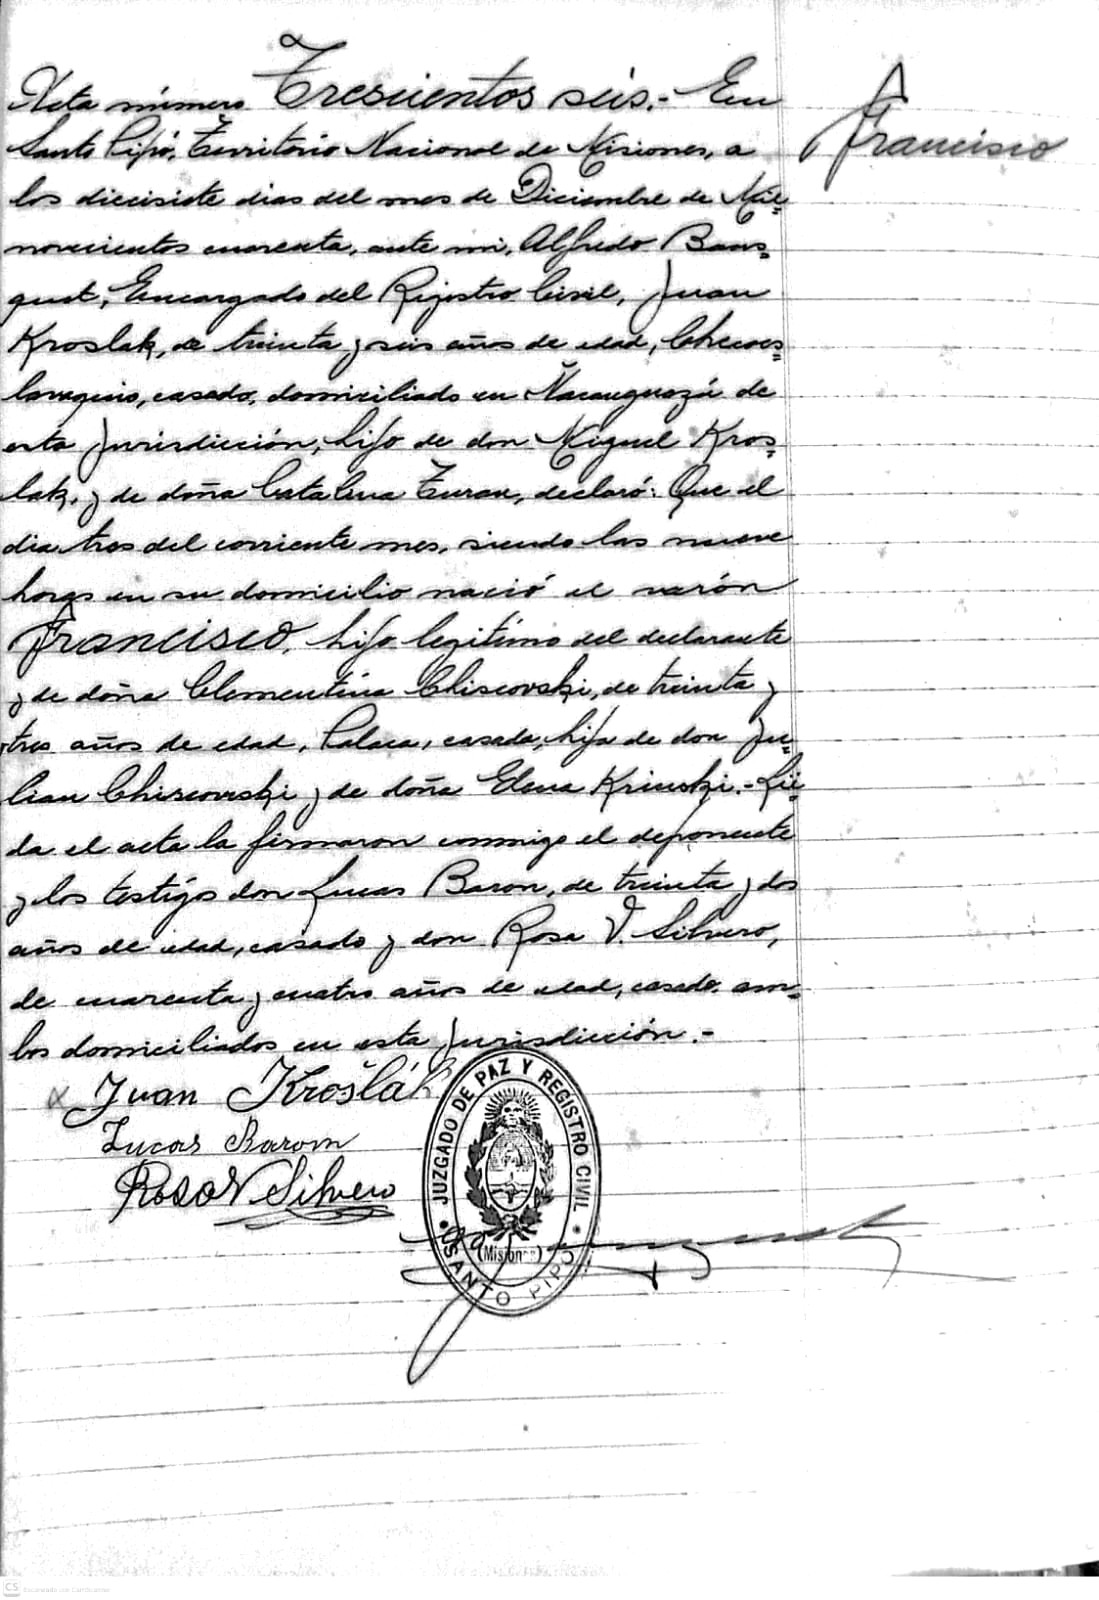 Acta número Trescientos seis.- En
Francisco
Santo Pipó, Territorio Nacional de Misiones, a
los diecisiete dias del mes de Diciembre de Mil
novecientos cuarenta, ante mi, Alfredo Bans=
quet, Encargado del Rejistro Civil, Juan
Kroslak, de treinta y seis años de edad, Checoes=
lovaquio, casado, domiciliado en Ñacanguazú de
esta jurisdicción, hijo de don Miguel Kros=
lak, y de doña Catalina Turan, declaró: Que el
dia tres del corriente mes, siendo las nueve
horas en su domicilio nació el varón
Francisco, hijo legitimo del declarante
y de doña Clementina Chiscovski, de treinta y
tres años de edad, Polaca, casada, hija de don Ju=
lian Chiscovski y de doña Elena Krinski.- Leí=
da el acta la firmaron conmigo el deponente
y los testigos don Lucas Baron, de treinta y dos
años de edad, casado y don Rosa V. Silvero,
de cuarenta y cuatro años de edad, casado, am=
bos domiciliados en esta jurisdicción.-
Juan Krošlák
Lucas Barom
Rosa V Silvero
JUZGADO DE PAZ Y REGISTRO CIVIL
(Misiones)
SANTO PIPÓ
CS Escaneado con CamScanner